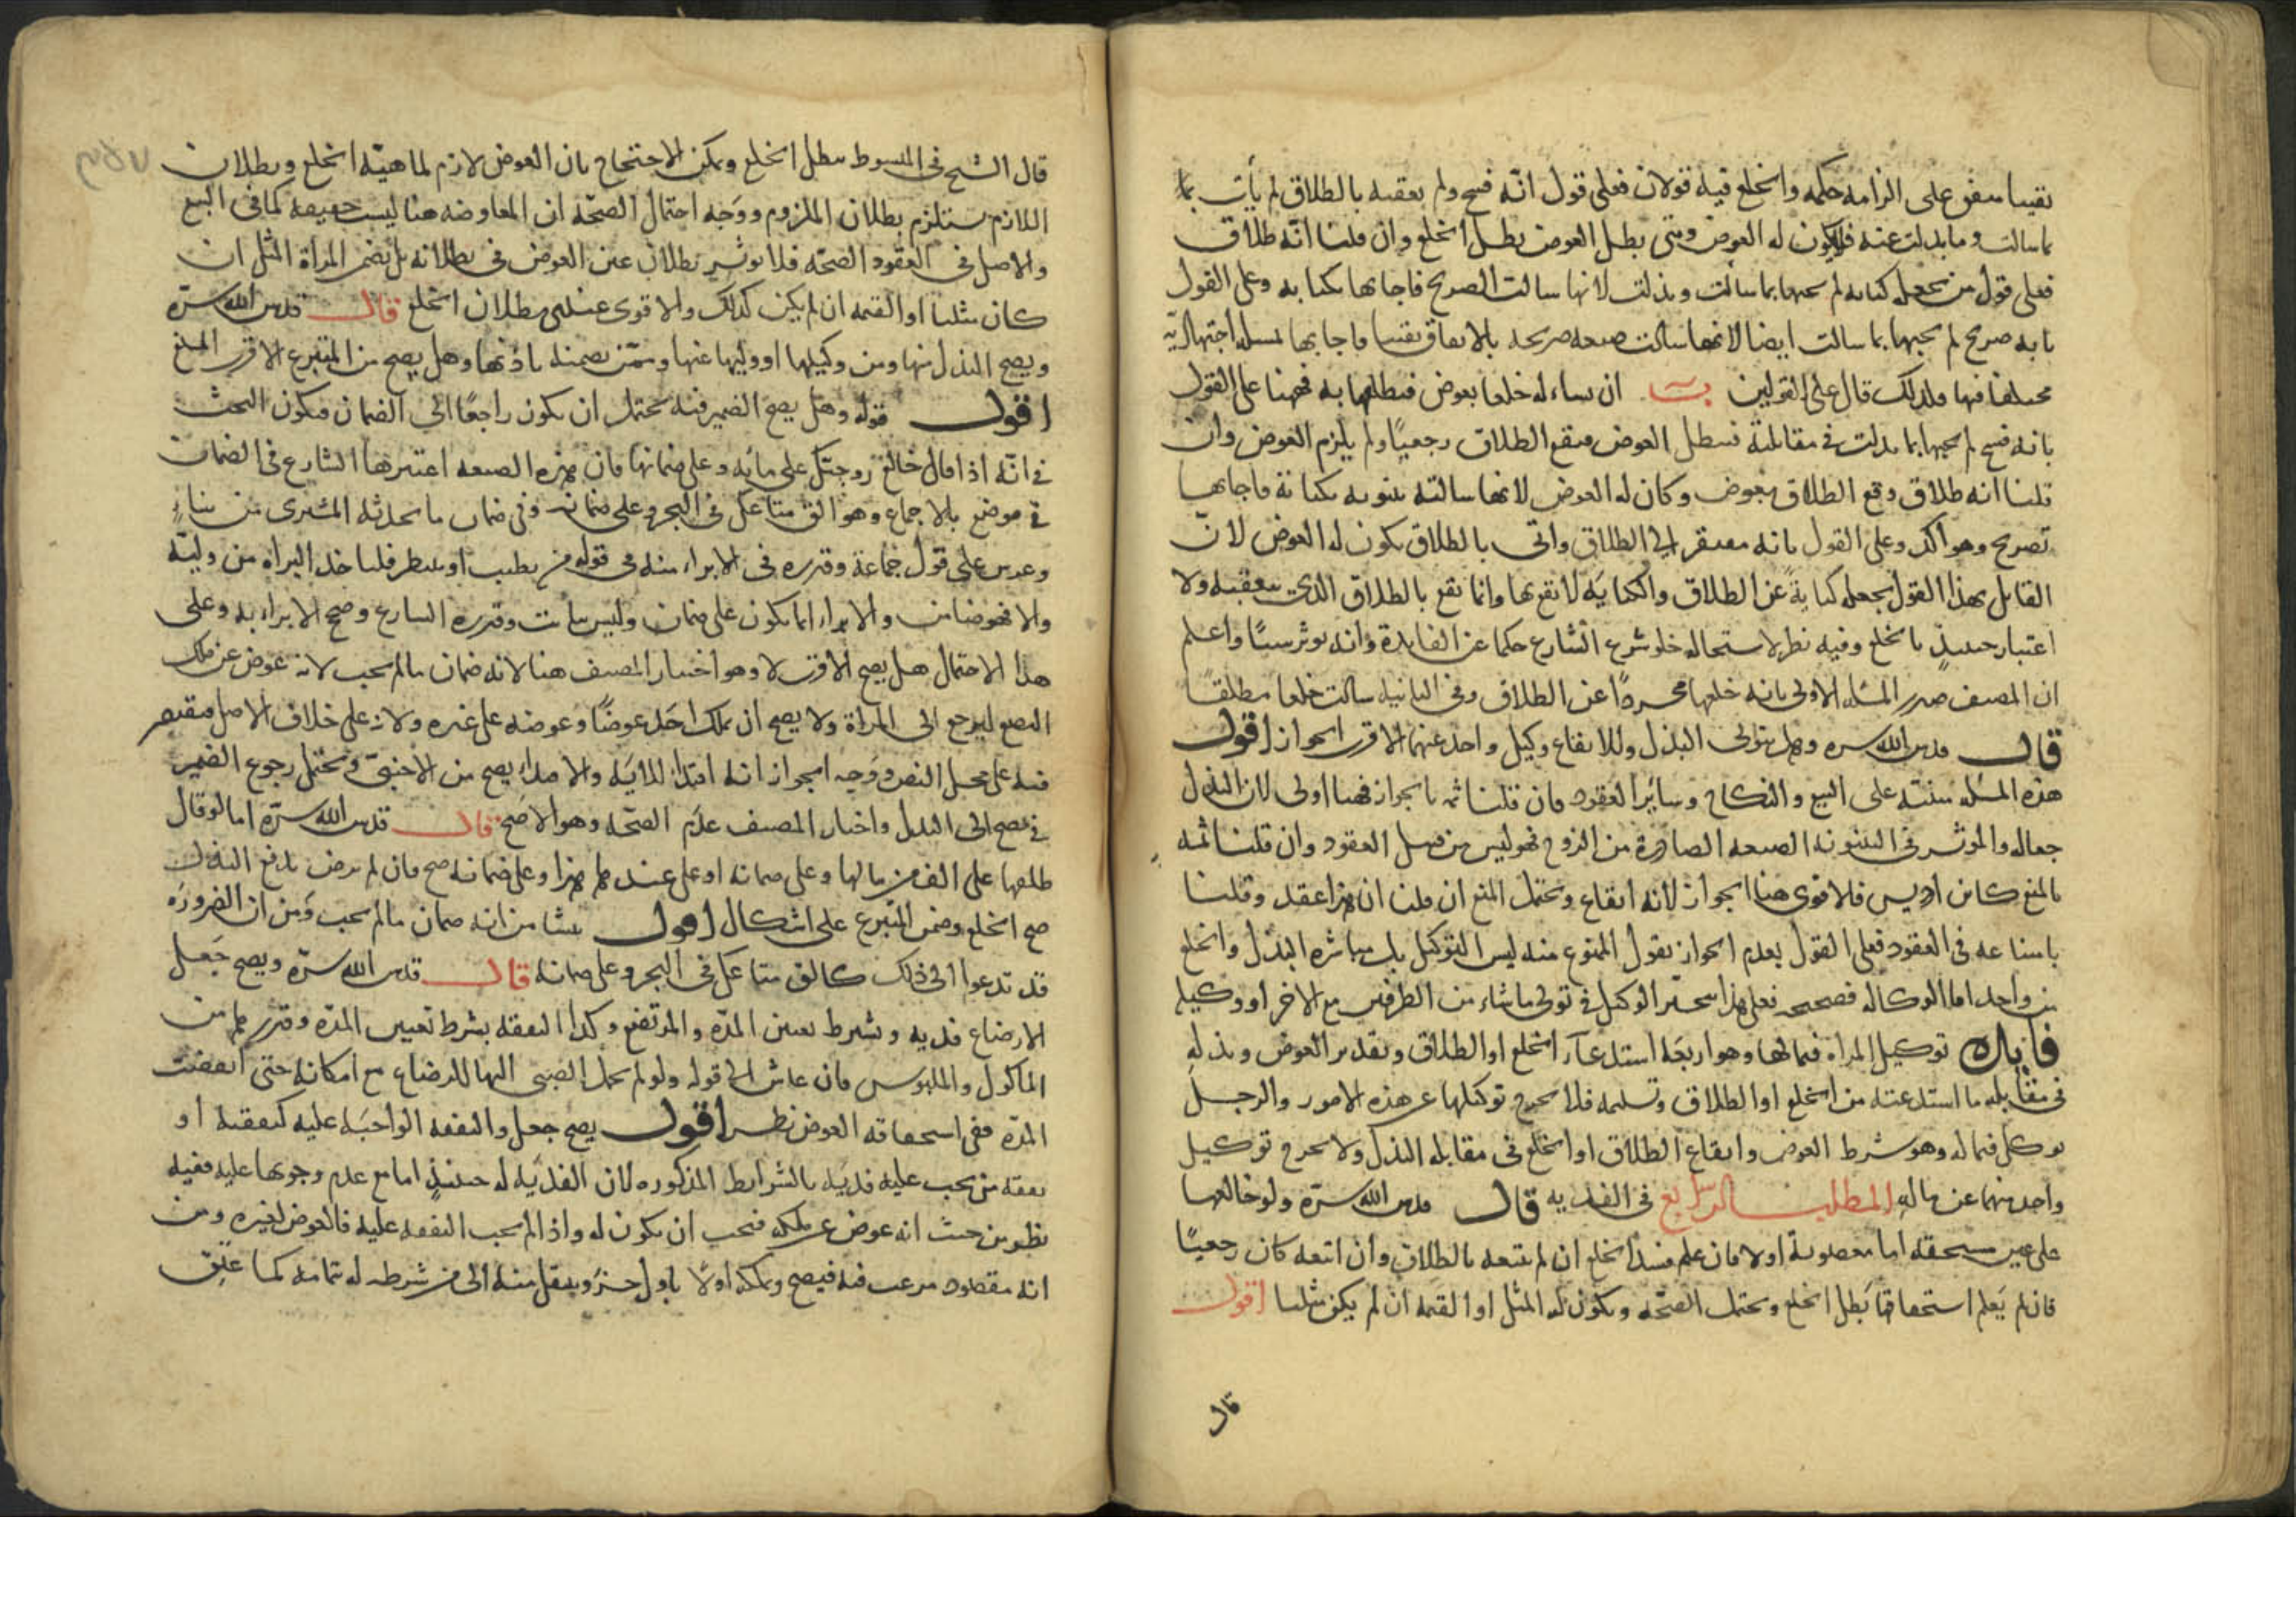 يقينا متفق على الزامه حكمه والخلع فيه قولان فعلى قول انّه فسخ ولم يعقبه بالطلاق لم يأت بما
ما سالت وما بذلت عنه فلا يكون له العوض ومتى بطل العوض بطل الخلع وان قلنا انّه طلاق
فعلى قول من يجعله كناية لم يجبها بما سالت وبذلت لانها سالت الصريح فاجابها بكناية وعلى القول
بانه صريح لم يجبها بما سالت ايضا لانها سالت صيغه صريحه بالاتفاق يقينا فاجابها بمسئله اجتهاديّه
مختلفا فيها فلذلك قال على القولين ان ساله خلعا بعوض فيطلقها به فههنا على القول
بانه فسخ لم يجبها بما بذلت في مقابلته فبطل العوض فيقع الطلاق رجعيًا ولم يلزم العوض وان
قلنا انه طلاق وقع الطلاق بعوض وكان له العوض لانها سالته بينونه بكناية فاجابها
بصريح وهو اكد وعلى القول بانه مفتقر الى الطلاق واتى بالطلاق يكون له العوض لانّ
القايل بهذا القول يجعله كنايةً عن الطلاق والكنايَه لا يقع بها وانما تقع بالطلاق الذى يتعقبه ولا
اعتبار حينئذٍ بالخلع وفيه نظر لاستحاله خلو شرع الشارع حكما عن الفايدة وانه يوثر سببًا واعلم
ان المصنف صدر المسئله الاولى بانه خلعها مجردًا عن الطلاق وفى الثانيه سالت خلعا مطلقًا
قال قدس الله سره وهل يتولى البذل والايقاع وكيل واحد عنهما الاقرب الجواز اقول
هذه المسئله مبنيّه على البيع والنكاح وسائر العقود فان قلنا ثمه بالجواز فههنا اولى لان البذل
جعاله والموثر فى البينونه الصيغه الصادرة من الزوج فهو ليس من قبيل العقود وان قلنا ثمه
بالمنع كابن ادريس فالاقوى هنا الجواز لانه ايقاع ويحتمل المنع ان قلنا ان هذا عقد وقلنا
بامتناعه فى العقود فعلى القول بعدم الجواز نقول الممنوع منه ليس التوكيل بل مباشره البذل والخلع
من واحد اما الوكاله فصحيحه فعلى هذا يتخيّر الوكيل فى تولى ما شاء من الطرفين مع الاخر او وكيله
فايدة توكيل المراه فيما لها وهو اربعَه استدعآء الخلع او الطلاق وتقدير العوض وبذله
فى مقابله ما استدعته من الخلع او الطلاق وتسليمه فلا يخرج توكيلها عن هذه الامور والرجل
يوكل فيما له وهو شرط العوض وايقاع الطلاق او الخلع فى مقابله البذل ولا يخرج توكيل
واحد منهما عن ما له المطلب الرابع فى الفديه قال قدس الله سرّه ولو خالعها
على عين مستحقه اما مغصوبة اولا فان علم فسد الخلع ان لم يتبعه بالطلاق وان اتبعه كان رجعيًا
فان لم يَعلم استحقاقها بَطل الخلع ويحتمل الصحّه ويكون له المثل او القيمه ان لم يكن مثليا اقول
قال
قال الشيخ فى المبسوط يبطل الخلع ويمكن الاحتجاج بان العوض لازم لماهيّه الخلع وبطلان
اللازم يستلزم بطلان الملزوم ووَجه احتمال الصحّه ان المعاوضه هنا ليست حقيقه كما فى البيع
والاصل فى العقود الصحّه فلا يوثر بطلان عين العوض فى بطلانه بل يضمن المراة المثل ان
كان مثليا او القيمه ان لم يكن كذلك والاقوى عندى بطلان الخلع قال قدس الله سرّه
ويصح البذل منها ومن وكيلها او وليها عنها وممّن يضمنه باذنها وهل يصح من المتبرع الاقرب المنع
اقول قوله وهل يصح الضمير فيه يحتمل ان يكون راجعًا الى الضمان فيكون البحث
فى انّه اذا قال خالع زوجتك على مايه وعلى ضمانها فان هذه الصيغه اعتبرها الشارع فى الضمان
فى موضع بالاجماع وهو الق متاعك فى البحر وعلى ضمانه وفى ضمان ما يحدثه المشترى من بناءٍ
وغرس على قول جماعة وقرره فى الابراء منه فى قوله من يطبب او يتبيطر فلياخذ البراه من وليّه
والا فهو ضامن والابراء انما يكون على ضمان وليس بثابت وقرره الشارع وصح الابراء به وعلى
هذا الاحتمال هل يصح الاقرب لا وهو اختيار المصنف هنا لانه ضمان ما لم يجب لانه عوض عن ملك
البضع ليرجع الى المراة ولا يصح ان يملك احَد عوضًا وعوضه على غيره ولانه على خلاف الاصل فيقتصر
فيه على محل النص ووَجه الجواز انه افتدآء للايَه والافتداء يصح من الاجنبىّ ويحتمل رجوع الضمير
فى يصح الى البذل واختار المصنف عدَم الصحّه وهو الاصَح قال قدس الله سرّه اما لو قال
طلقها على الف من مالها وعلى ضمانه او على عبدها هذا وعلى ضمانه صح فان لم يرض بدفع البذل
صح الخلع وضمن المتبرع على اشكال اقول ينشا من انه ضمان ما لم يجب وَمن ان الضرورَه
قد تدعوا الى ذلك كالق متاعَك فى البحر وعلى ضمانه قال قدس الله سرّه ويصح جَعل
الارضاع فديه وبشرط تعيين المدّه والمرتضع وكذا النفقه بشرط تعيين المدّه وقدرها من
الماكول والملبوس فان عاش الى قوله ولو لم تحمل الصبى اليها للرضاع مع امكانه حتى انقضت
المدّه ففى استحقاقه العوض نظر اقول يصح جعل والنفقه الواجبَه عليه كنفقته او
نفقه من يجب عليه فديَه بالشرايط المذكوره لان الفديَه له حينئذٍ اما مع عدم وجوبها عليه ففيه
نظر من حيث انه عوض عن ملكه فيجب ان يكون له واذا لم يجب النفقه عليه فالعوض لغيره ومن
انه مقصود مرغب فيه فيصح ويملكه اولًا باول جزء وينتقل منه الى من شرطه له تمامه كما علق